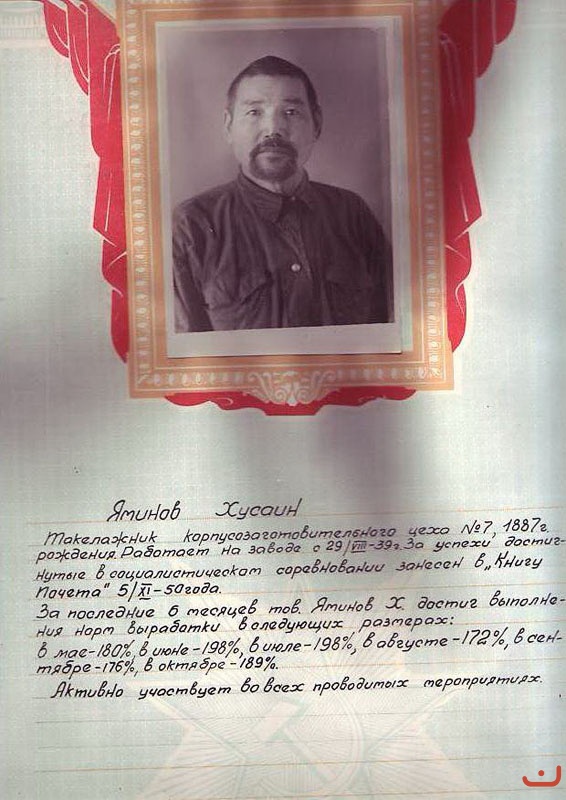 Яминов Хусаин
Такелажник корпусозаготовительного цеха №7, 1887г.
рождения. Работает на заводе с 29/VIII-39г. За успехи достиг-
нутые в социалистическом соревновании занесен в „Книгу
Почета" 5/XI-50года.
За последние 6 месяцев тов. Яминов Х. достиг выполне-
ния норм выработки в следующих размерах:
в мае-180%, в июне-198%, в июле-198%, в августе-172%, в сен-
тябре-176%, в октябре-189%.
Активно участвует во всех проводимых мероприятиях.